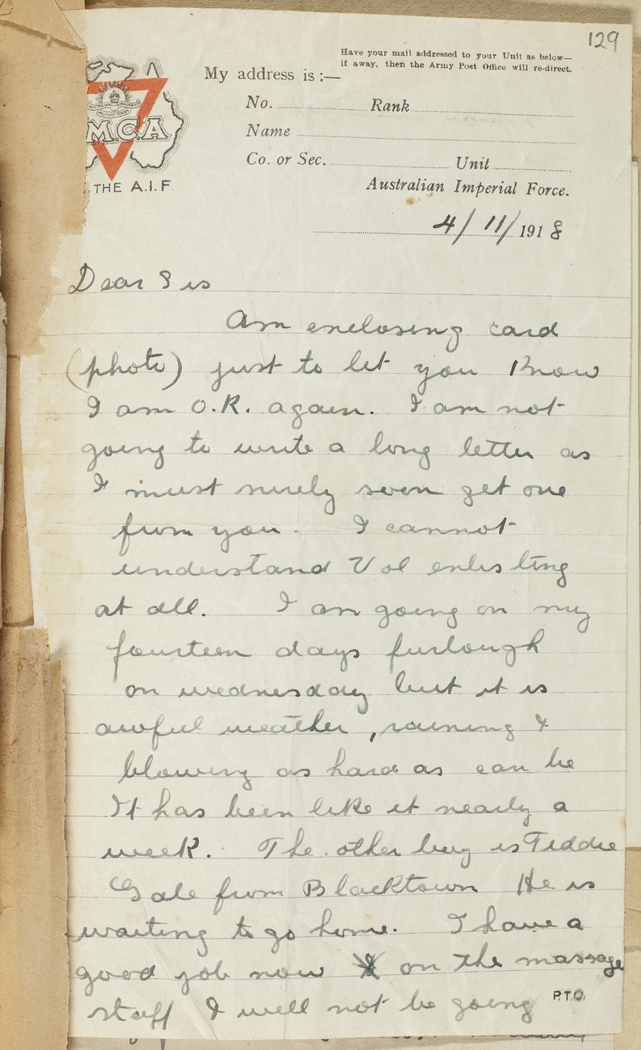 129
Have your mail addressed to your Unit as below—
if away, then the Army Post Office will re-direct.
My address is :—
No. Rank
Name
Co. or Sec. Unit
Australian Imperial Force.
M.C.A
THE A.I.F.
4/11/1918
Dear Sis
Am enclosing card
(photo) just to let you know
I am O.K. again. I am not
going to write a long letter as
I must surely soon get one
from you. I cannot
understand Vol enlisting
at all. I am going on my
fourteen days furlough
on wednesday but it is
awful weather, raining &
blowing as hard as can be
It has been like it nearly a
week. The other boy is Teddie
Gale from Blacktown He is
waiting to go home. I have a
good job now on the massage
staff I will not be going
P.T.O.